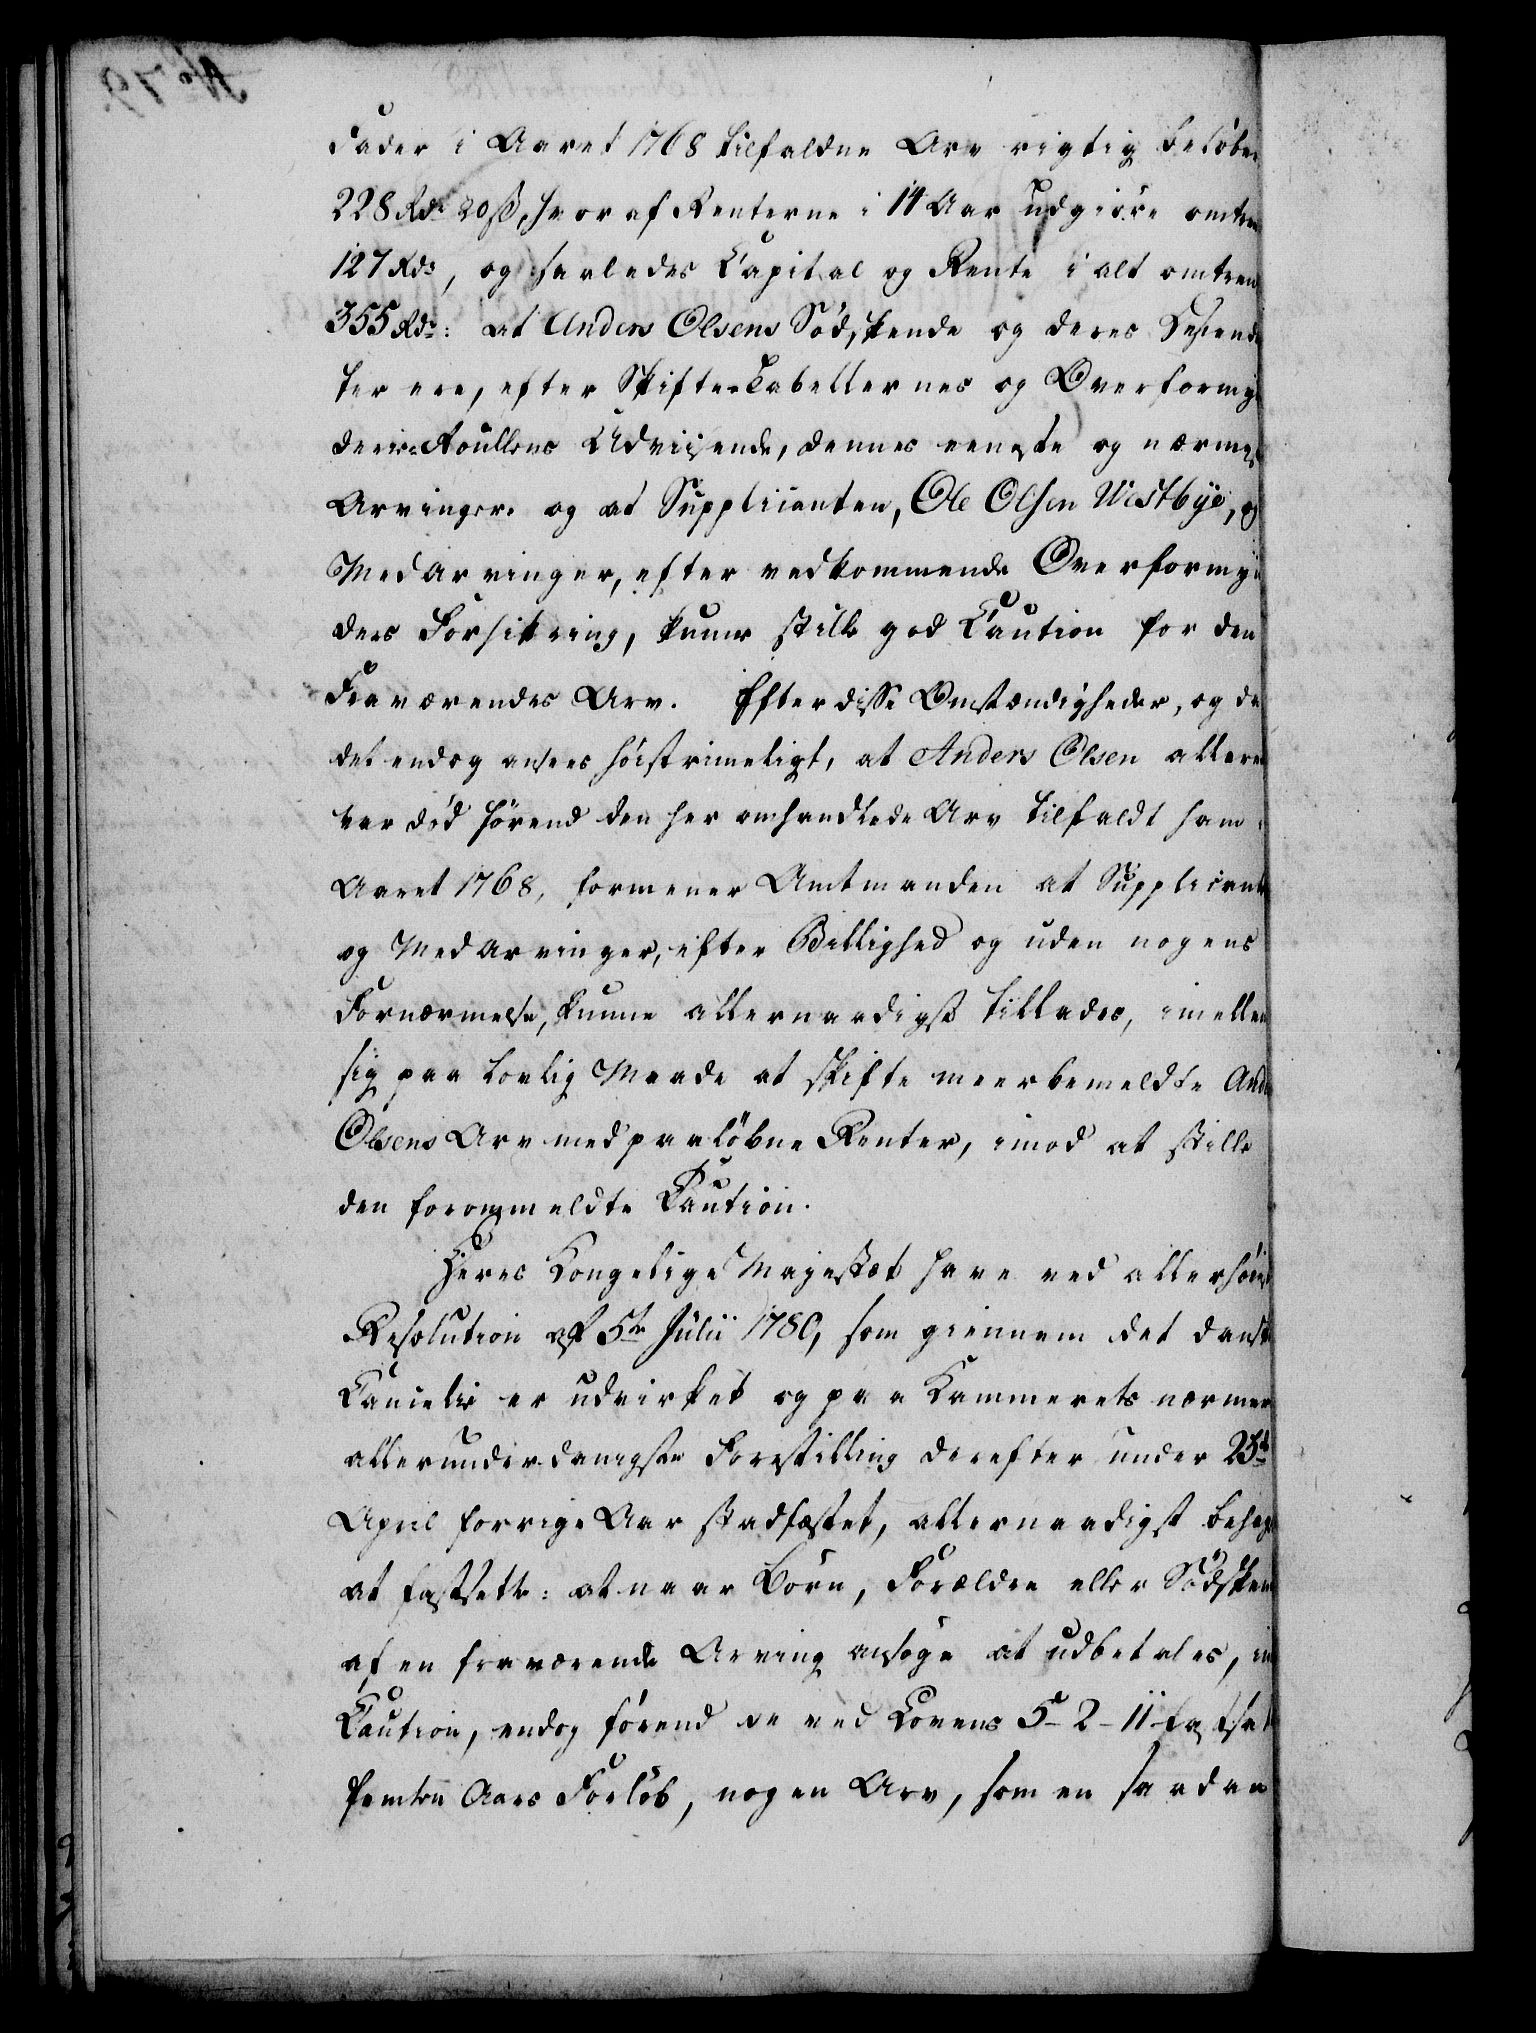 Fader i Aaret 1768 tilfaldne Arv rigtig beløber
228 Rdr 20 ß, hvoraf Renterne i 14 Aar udgiøre omtren
127 Rdr, og saaledes Capital og Rente i alt omtren
355 Rdr: at Anders Olsens Sødskende og deres Descenden
ter ere, efter Skifte-Tabellernes og Overformyn
derie-Roullens Udviisende, dennes eeneste og nærmeste
Arvinger. og at Supplicanten, Ole Olsen Westbye, og
Medarvinger, efter vedkommende Overformyn
ders Forsikring, kunne stille god Caution for den
Fraværendes Arv. Efter disse Omstændigheder, og da
det endog ansees høistrimeligt, at Anders Olsen allere
var død førend den her omhandlede Arv tilfaldt ham i
Aaret 1768, formener Amtmanden at Supplicante
og Medarvinger, efter Billighed og uden nogens
Fornærmelse, kunne allernaadigst tillades, imellem
sig paa lovlig Maade at skifte meerbemeldte Ande
Olsens Arv med paaløbne Renter, imod at stille
den forommeldte Caution.
Deres Kongelige Majestæt have ved allerhøiest
Resolution af 5te Julii 1780, som giennem det danske
Cancelie er udvirket og paa Kammerets nærmere
allerunderdanigste Forestilling derefter under 25de
April forrige Aar stadfæstet, allernaadigst behag
at fastsette: at naar Børn, Forældre eller Sødsken
af en fraværende Arving ansøge at udbetales, im
Caution, endog førend de ved Lovens 5-2-11 fastsat
femten Aars Forløb, nogen Arv, som en saadan